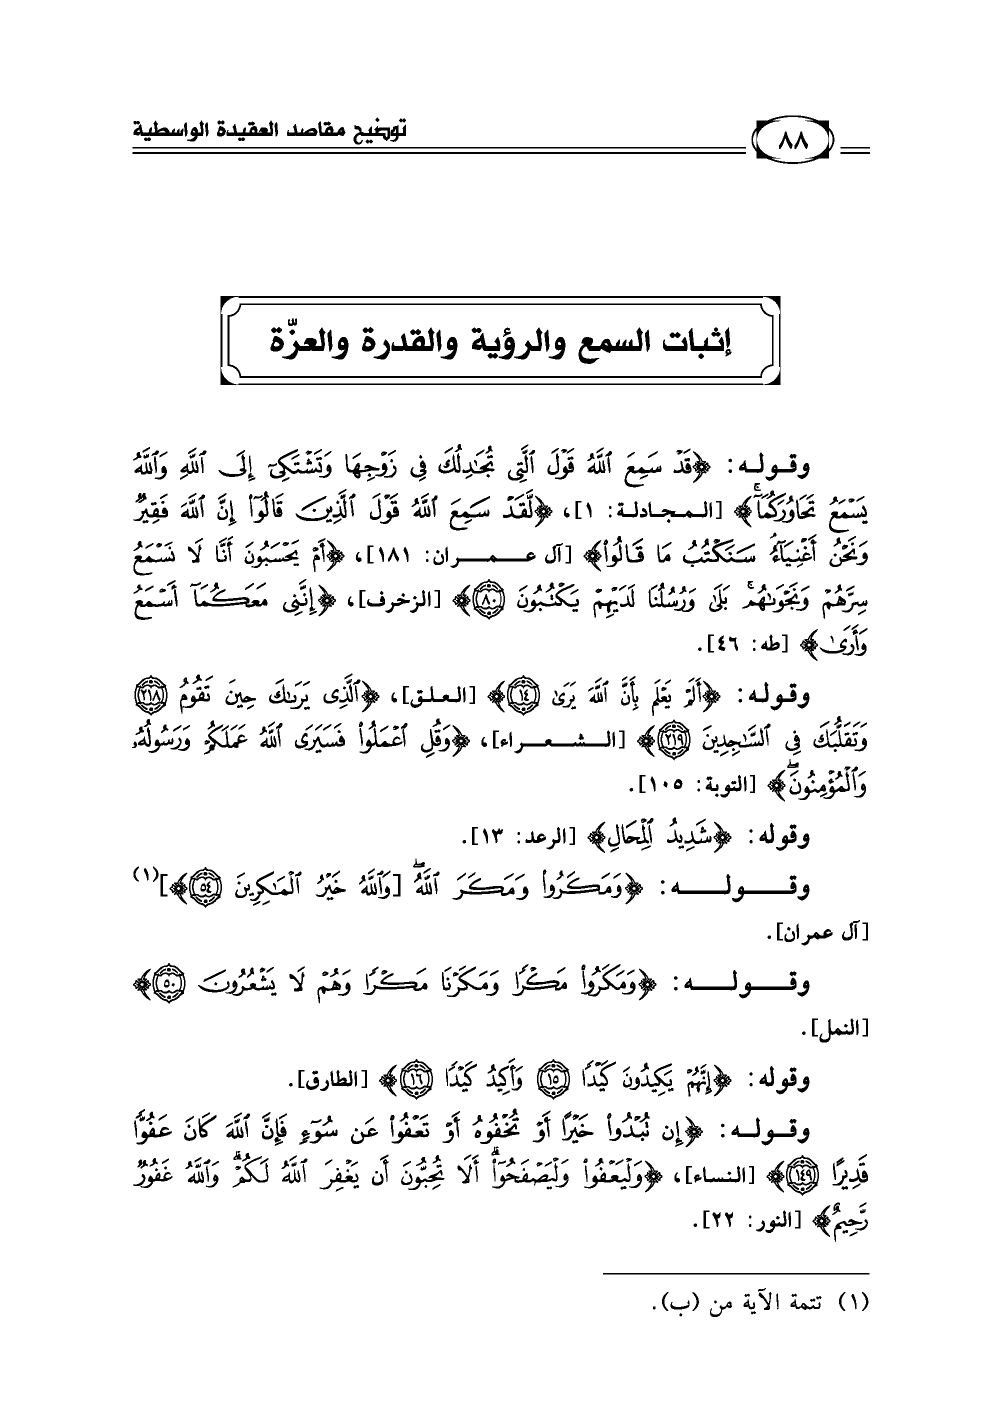 توضيح مقاصد العقيدة الواسطية
٨٨
إثبات السمع والرؤية والقدرة والعزّة
وقوله: ﴿قَدْ سَمِعَ ٱللَّهُ قَوْلَ ٱلَّتِى تُجَٰدِلُكَ فِى زَوْجِهَا وَتَشْتَكِىٓ إِلَى ٱللَّهِ وَٱللَّهُ
يَسْمَعُ تَحَاوُرَكُمَآۚ﴾ [المجادلة: ١]، ﴿لَّقَدْ سَمِعَ ٱللَّهُ قَوْلَ ٱلَّذِينَ قَالُوٓا۟ إِنَّ ٱللَّهَ فَقِيرٌ
وَنَحْنُ أَغْنِيَآءُۘ سَنَكْتُبُ مَا قَالُوا۟﴾ [آل عمران: ١٨١]، ﴿أَمْ يَحْسَبُونَ أَنَّا لَا نَسْمَعُ
سِرَّهُمْ وَنَجْوَىٰهُمۚ بَلَىٰ وَرُسُلُنَا لَدَيْهِمْ يَكْتُبُونَ ٨٠﴾ [الزخرف]، ﴿إِنَّنِى مَعَكُمَآ أَسْمَعُ
وَأَرَىٰ﴾ [طه: ٤٦].
وقوله: ﴿أَلَمْ يَعْلَم بِأَنَّ ٱللَّهَ يَرَىٰ ١٤﴾ [العلق]، ﴿ٱلَّذِى يَرَىٰكَ حِينَ تَقُومُ ٢١٨
وَتَقَلُّبَكَ فِى ٱلسَّٰجِدِينَ ٢١٩﴾ [الشعراء]، ﴿وَقُلِ ٱعْمَلُوا۟ فَسَيَرَى ٱللَّهُ عَمَلَكُمْ وَرَسُولُهُۥ
وَٱلْمُؤْمِنُونَۖ﴾ [التوبة: ١٠٥].
وقوله: ﴿شَدِيدُ ٱلْمِحَالِ﴾ [الرعد: ١٣].
وقوله: ﴿وَمَكَرُوا۟ وَمَكَرَ ٱللَّهُۖ [وَٱللَّهُ خَيْرُ ٱلْمَٰكِرِينَ ٥٤﴾](١)
[آل عمران].
وقوله: ﴿وَمَكَرُوا۟ مَكْرًا وَمَكَرْنَا مَكْرًا وَهُمْ لَا يَشْعُرُونَ ٥٠﴾
[النمل].
وقوله: ﴿إِنَّهُمْ يَكِيدُونَ كَيْدًا ١٥ وَأَكِيدُ كَيْدًا ١٦﴾ [الطارق].
وقوله: ﴿إِن تُبْدُوا۟ خَيْرًا أَوْ تُخْفُوهُ أَوْ تَعْفُوا۟ عَن سُوٓءٍ فَإِنَّ ٱللَّهَ كَانَ عَفُوًّا
قَدِيرًا ١٤٩﴾ [النساء]، ﴿وَلْيَعْفُوا۟ وَلْيَصْفَحُوٓا۟ۗ أَلَا تُحِبُّونَ أَن يَغْفِرَ ٱللَّهُ لَكُمْۗ وَٱللَّهُ غَفُورٌ
رَّحِيمٌ﴾ [النور: ٢٢].
(١) تتمة الآية من (ب).